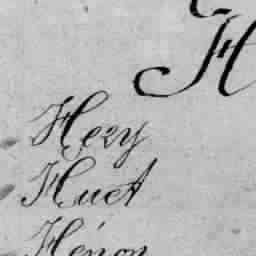 H
Hezy
Huet
Hénon